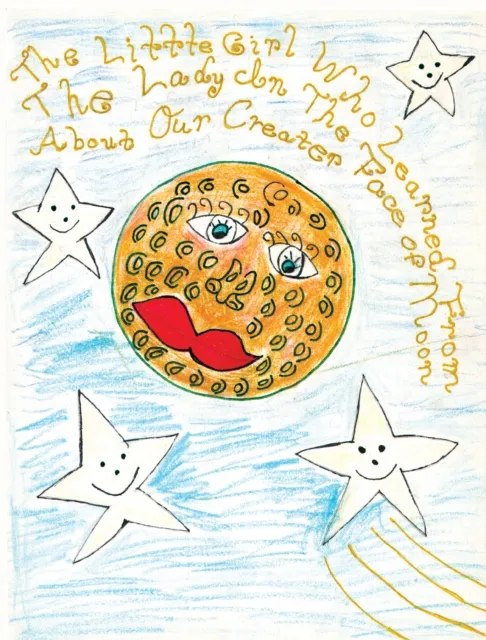 The Little Girl Who Learned From
The Lady In The Face of Moon
About Our Creater